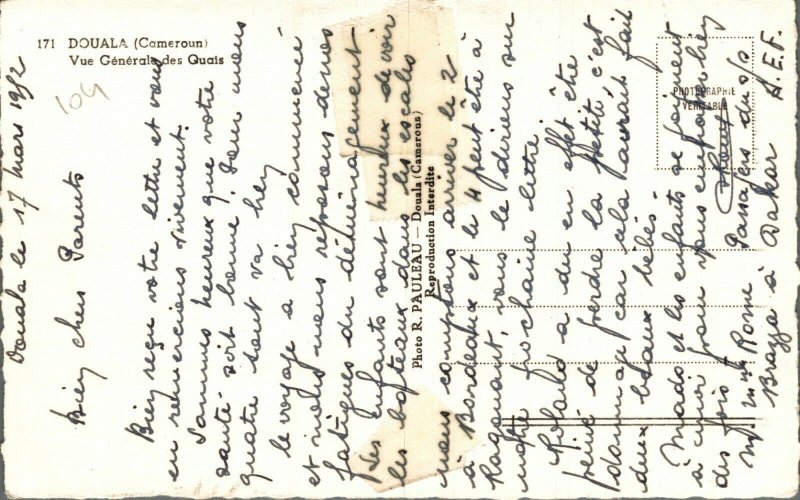 171 DOUALA (Cameroun)
Vue Générale des Quais
104
Photo R. PAULEAU — Douala (Cameroun)
Reproduction Interdite
PHOTOGRAPHIE
VÉRITABLE
Douala le 17 mars 1952
Bien chers Parents
Bien reçu votre lettre et vous
en remercions vivement.
Sommes heureux que votre
santé soit bonne. Pour nous
quatre tout va bien
le voyage a bien commencé
et nous nous reposons de nos
fatigues du déménagement
Les enfants sont heureux de voir
les bateaux dans les escales
nous comptons arriver le 2
à Bordeaux et le 4 peut être à
vous le dirons sur
notre prochaine lettre.
Roland a du en effet être
peiné de perdre la petite c'est
dommage car cela aurait fait
deux beaux bébés.
Mado et les enfants se joignent
à moi pour vous embrasser bien
des fois
Mr Mme Rome Passagers du s/s
Brazza à Dakar A.E.F.